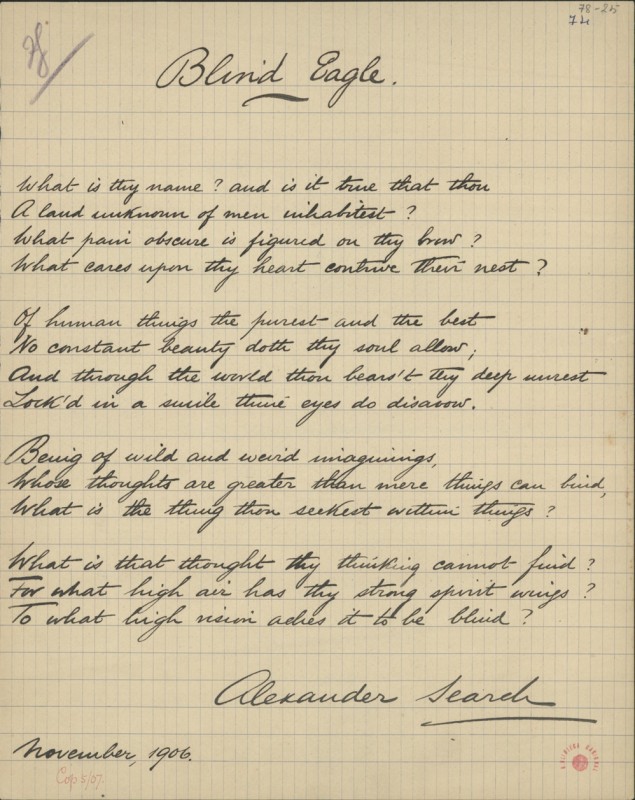 78-25
74
Blind Eagle.
What is thy name? and is it true that thou
A land unknown of men inhabitest?
What pain obscure is figured on thy brow?
What cares upon thy heart contrive their nest?
Of human things the purest and the best
No constant beauty doth thy soul allow;
And through the world thou bears't thy deep unrest
Lock'd in a smile thine eyes do disavow.
Being of wild and weird imaginings,
Whose thoughts are greater than mere things can bind,
What is the thing thou seekest within things?
What is that thought thy thinking cannot find?
For what high air has thy strong spirit wings?
To what high vision aches it to be blind?
Alexander Search
November, 1906.
Cop 5/07.